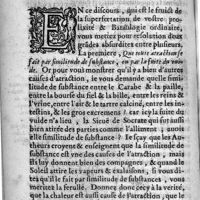 EN ce discours, qui est le fruict de
la superfetation de vostre pro-
lixité & Battologie ordinaire,
vous mettez pour resolution deux
grãdes absurditez entre plusieurs.
La premiere, Que toute attraction se
fait par similitude de substance, ou par la fuite du vui-
de. Or pour vous monstrer qu'il y a bien d'autres
causes d'attraction, ie vous demande quelle simi-
litude de substance entre le Carabe & la paille,
entre la bourse du fiel & la bille, entre les reins &
l'vrine, entre l'air & le tartre calciné, entre les in-
testins, & les gros excremens? car ie laisse la fuite du
vuide l'a lieu, la Siuë de Socrate qui est aussi
bien attirée des parties comme l'aliment; aussi
est similitude de substance? Ie sçay que les Au-
theurs croyent & enseignent que la similitude de
substance est vne des causes de l'attraction, mais
ils luy donnent bien des compagnes, & quand le
Soleil attire les vapeurs & exhalaisons, si vous di-
tes qu'il le fait par similitude de substance, vous
meritez la ferulle. Donnez donc cecy à la verité,
que la chaleur est aussi cause de l'attraction, que le